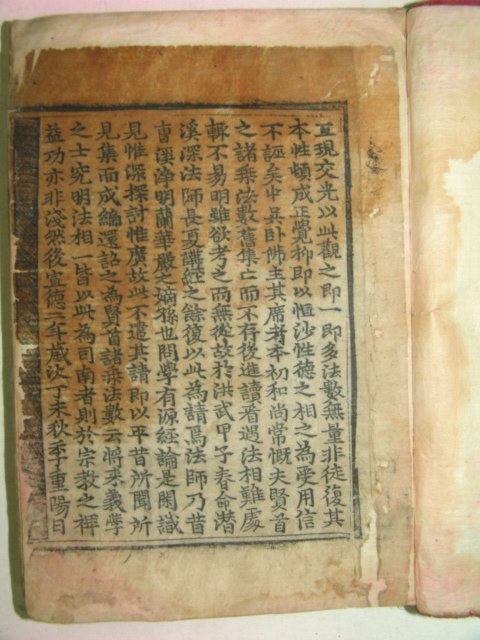 互現交光以此觀之即一即多法數無量非徒復其
本性頓成正覺抑即以恒沙性德之相之為受用信
不誣矣中具卧佛主其席者本初和尚常慨夫賢首
之諸乘法數舊集亡而不存後進讀者遇法相難處
輒不易明雖欲考之而無從故於洪武甲子春命潜
溪深法師長夏講經之餘復以此為請焉法師乃昔
曺溪淨明蘭華嚴之嫡孫也問學有源經論是閑識
見惟深探討惟廣故此不違其請即以平昔所聞所
見集而成編還詺之為賢首諸乘法數云將来義學
之士究明法相一皆以此為司南者則於宗教之裨
益功亦非淺然後宣德二年歲次丁未秋季重陽日